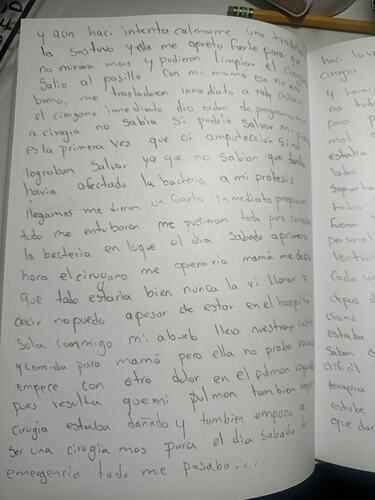 y aun haci intento calmarme una
la sostuvo y ella me apreto fuerte para que
no mirara mas y pudieron limpiar el
Salio al pasillo con mi mamá eso no era
bueno, me trasladaron inmediato a
el cirugano inmediato dio orden de
a cirugia no sabia si podria salvar mi
es la primera vez que oi amputacion si no
lograban salvar ya que no sabian que tanto
havia afectado la bacteria a mi protesis
llegamos me dieron un cuarto inmediato
todo me entubaron me pusieron todo para
la bacteria en loque el dia sabado a primera
hora el cirugano me operaria mamá me decia
que todo estaria bien nunca la vi llorar o
decir no puedo apesar de estar en el hospital
sola conmigo mi llevo nuestras
y comida para mamá pero ella no probo
empece con otro dolor en el pulmon
pues resulta que mi pulmon tambien
cirugia estaba dañado y tambien empezo a
ser una cirugia mas para el dia sabado de
emergencia todo me pasaba...
haci lo
cirugia
y horas
era todo
para
mal
estaba
todos
soportar
todos
fueron
personal
Cada
depus d
estaba
Saben d
dificil
terapia
estube
que dar